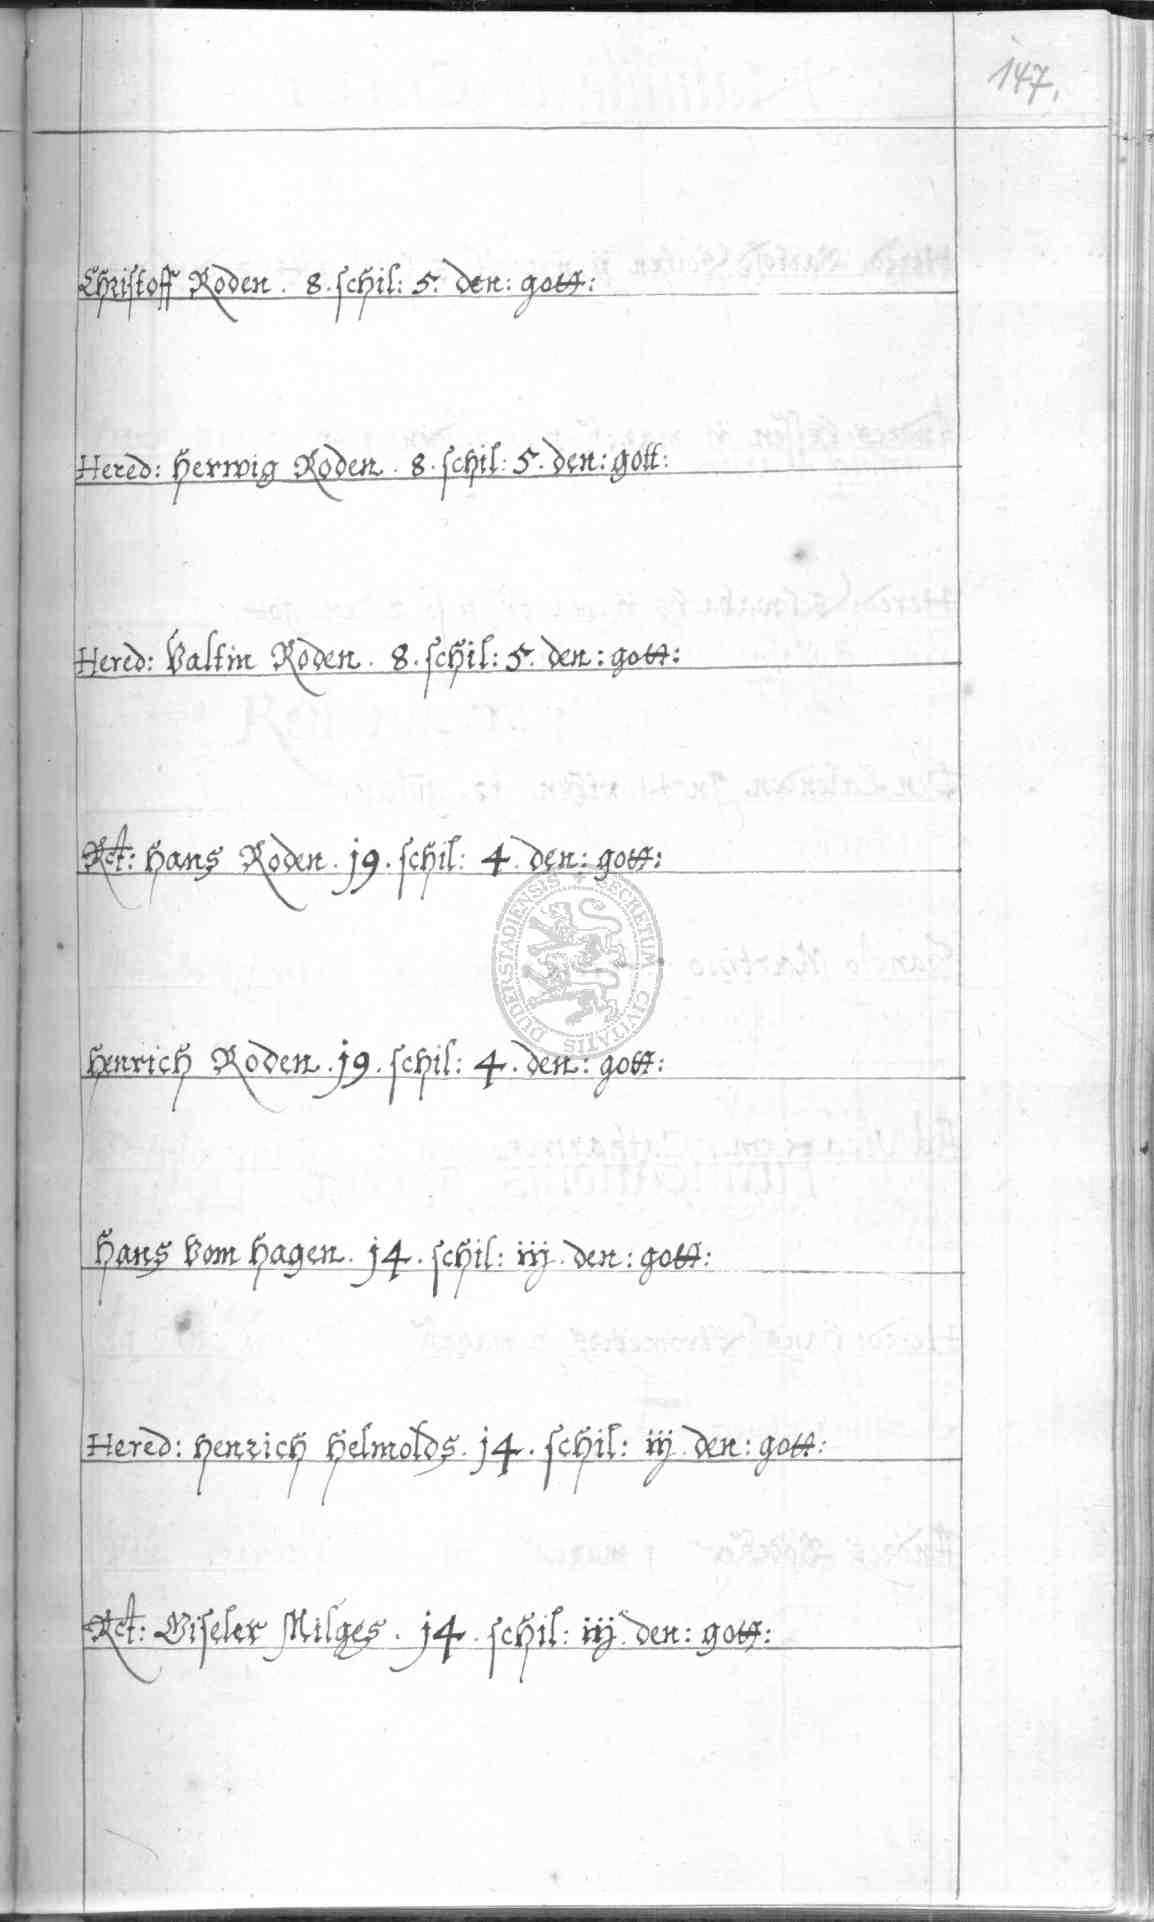 147.
Christoff Roden. 8. schil: 5. den: gott:
Hered: Herwig Roden. 8. schil: 5. den: gott:
Hered: Valtin Roden. 8. schil: 5. den: gott:
Rct: Hans Roden. j9. schil: 4. den: gott:
SECRETUM CIVITATIS DUDERSTADIENSIS
Henrich Roden. j9. schil: 4. den: gott:
Hans Vom Hagen. j4. schil: iij. den: gott:
Hered: Henrich Helmolds. j4. schil: iij. den: gott:
Rct: Giseler Milges. j4. schil: iij. den: gott: